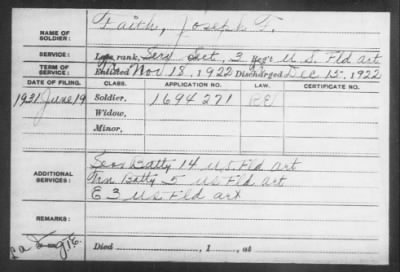 NAME OF SOLDIER: Faith, Joseph F.
SERVICE: Late rank, Serv Sect, 3 Regt U.S. Fld art
TERM OF SERVICE: Enlisted Nov 18, 1922 Discharged Dec 15, 1922
DATE OF FILING. CLASS. APPLICATION NO. LAW. CERTIFICATE NO.
1931 June 19 Soldier, 1694271
Widow,
Minor,
ADDITIONAL SERVICES: Serv Batty 14 U.S. Fld art
Batty 5 U S Fld art
E 3 U S Fld art
REMARKS:
Died , 1 , at